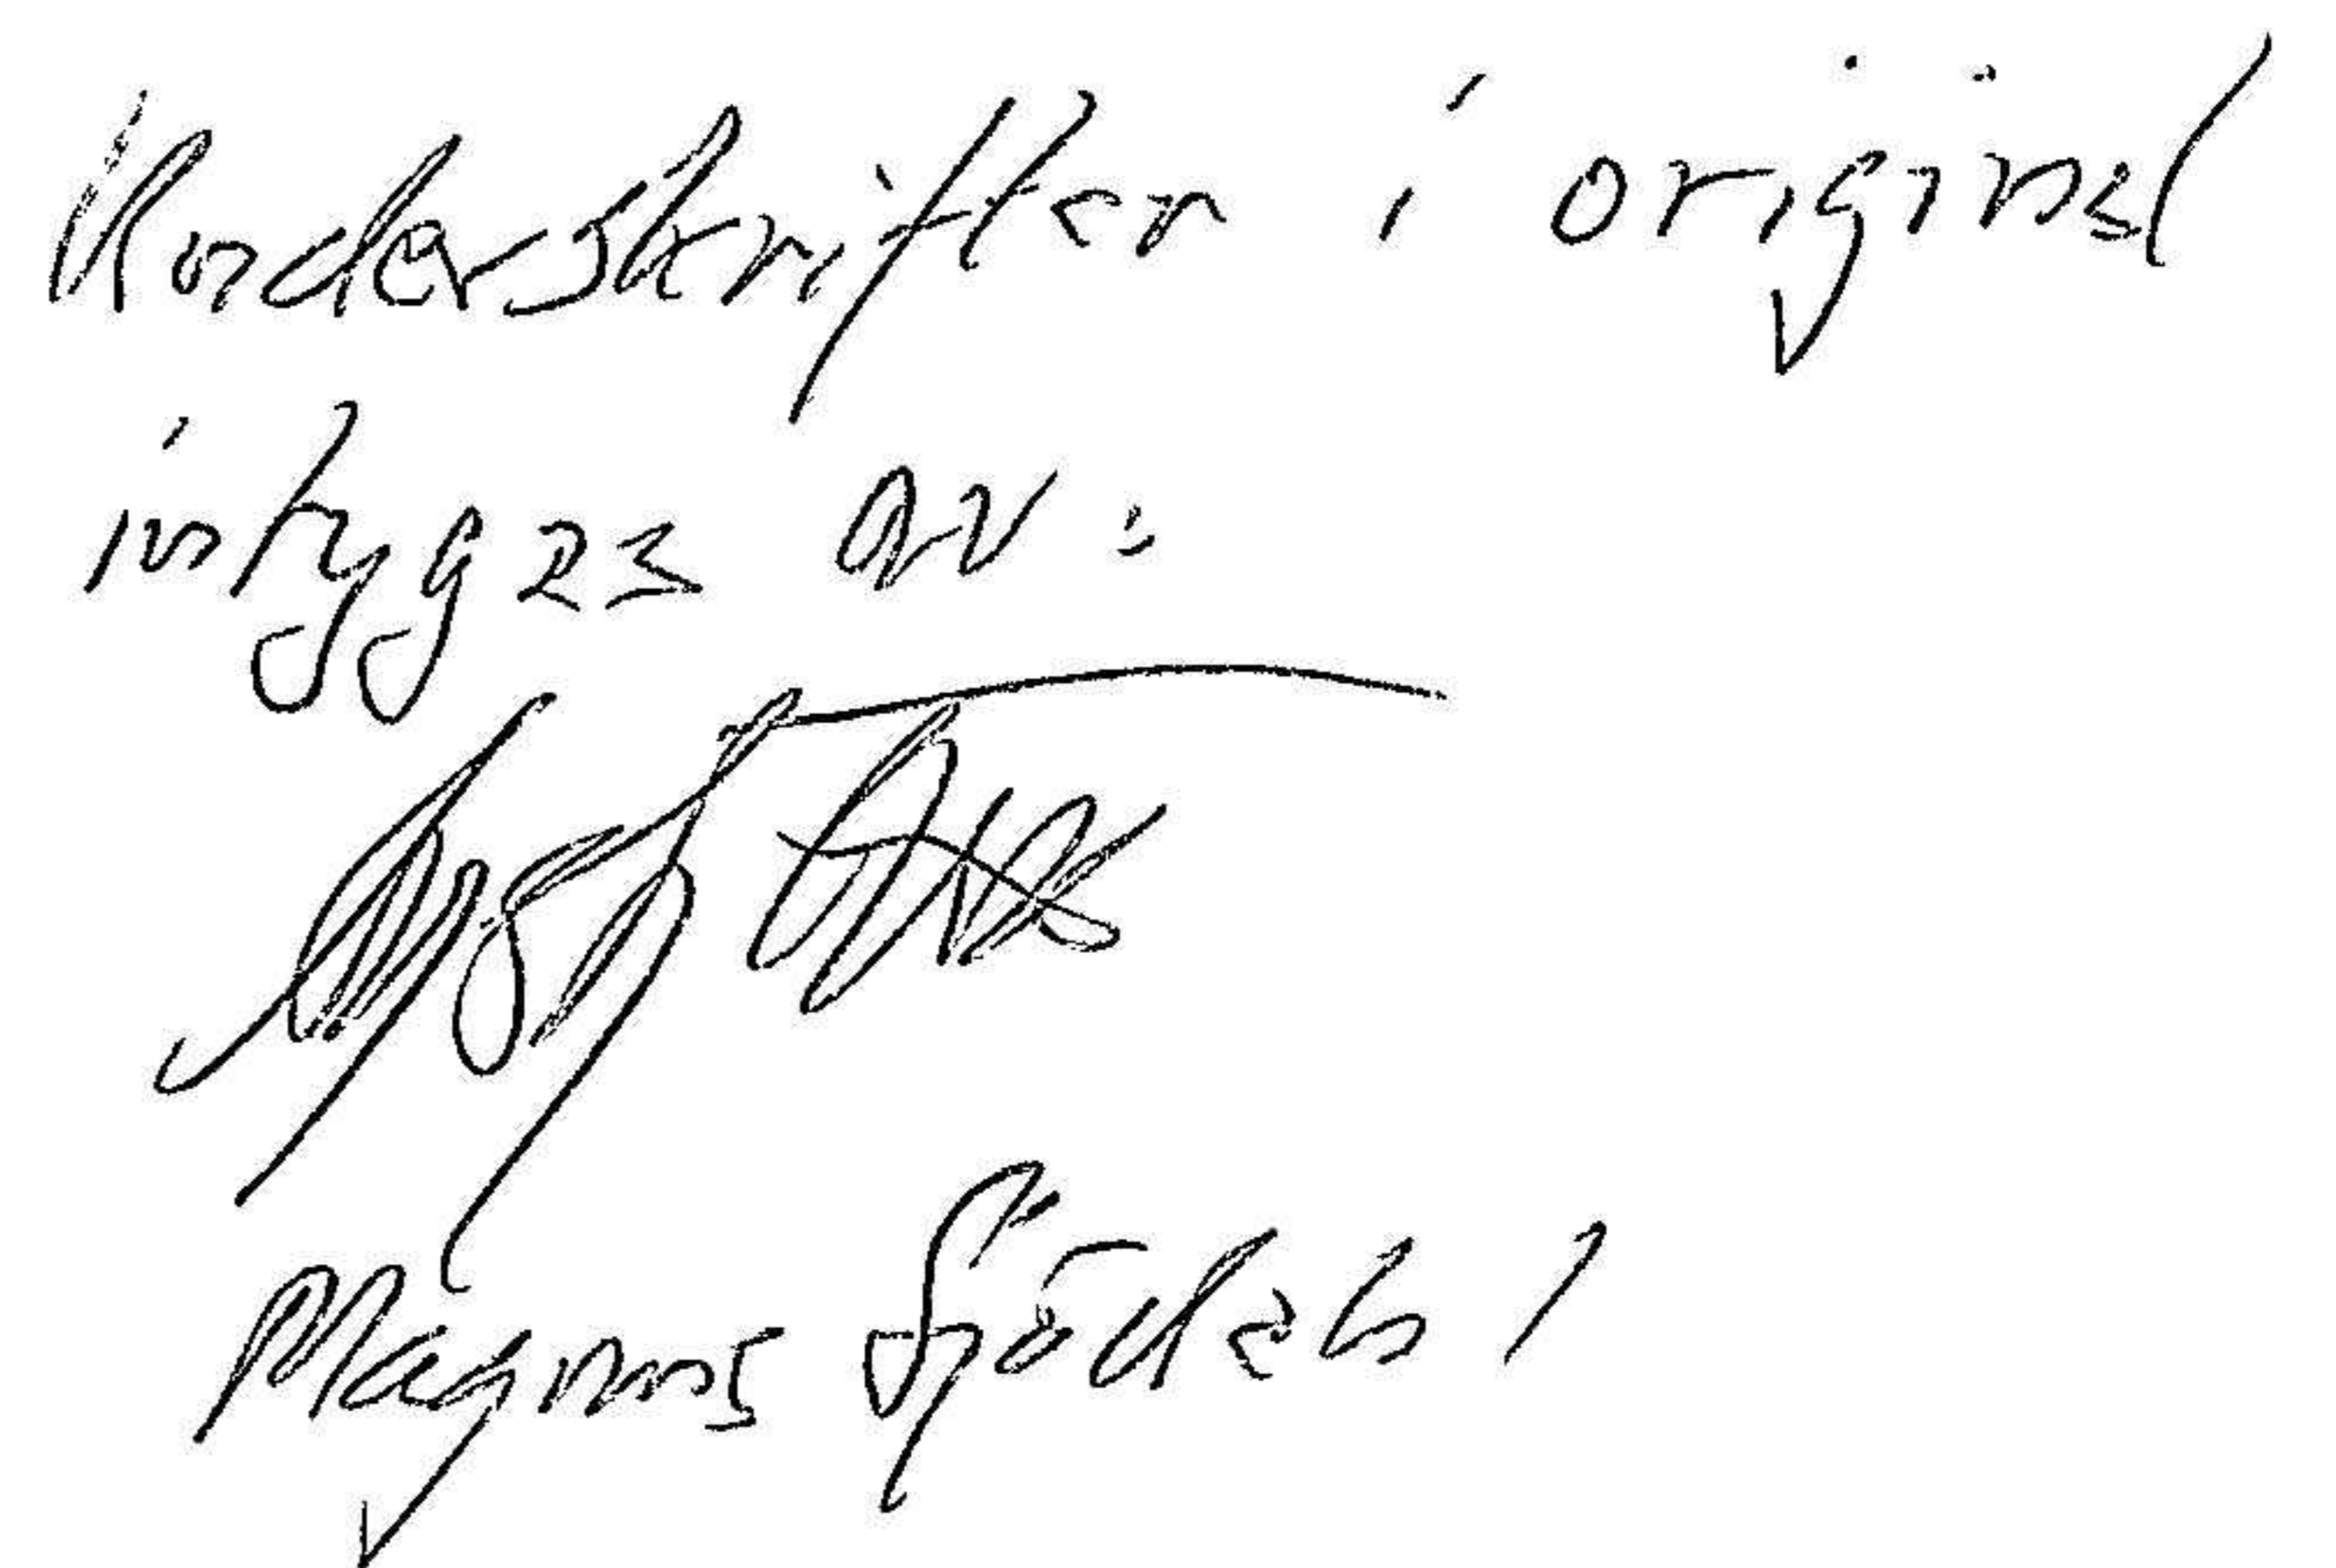 Underskrifter i original
intygas av:
Magnus Sjödahl